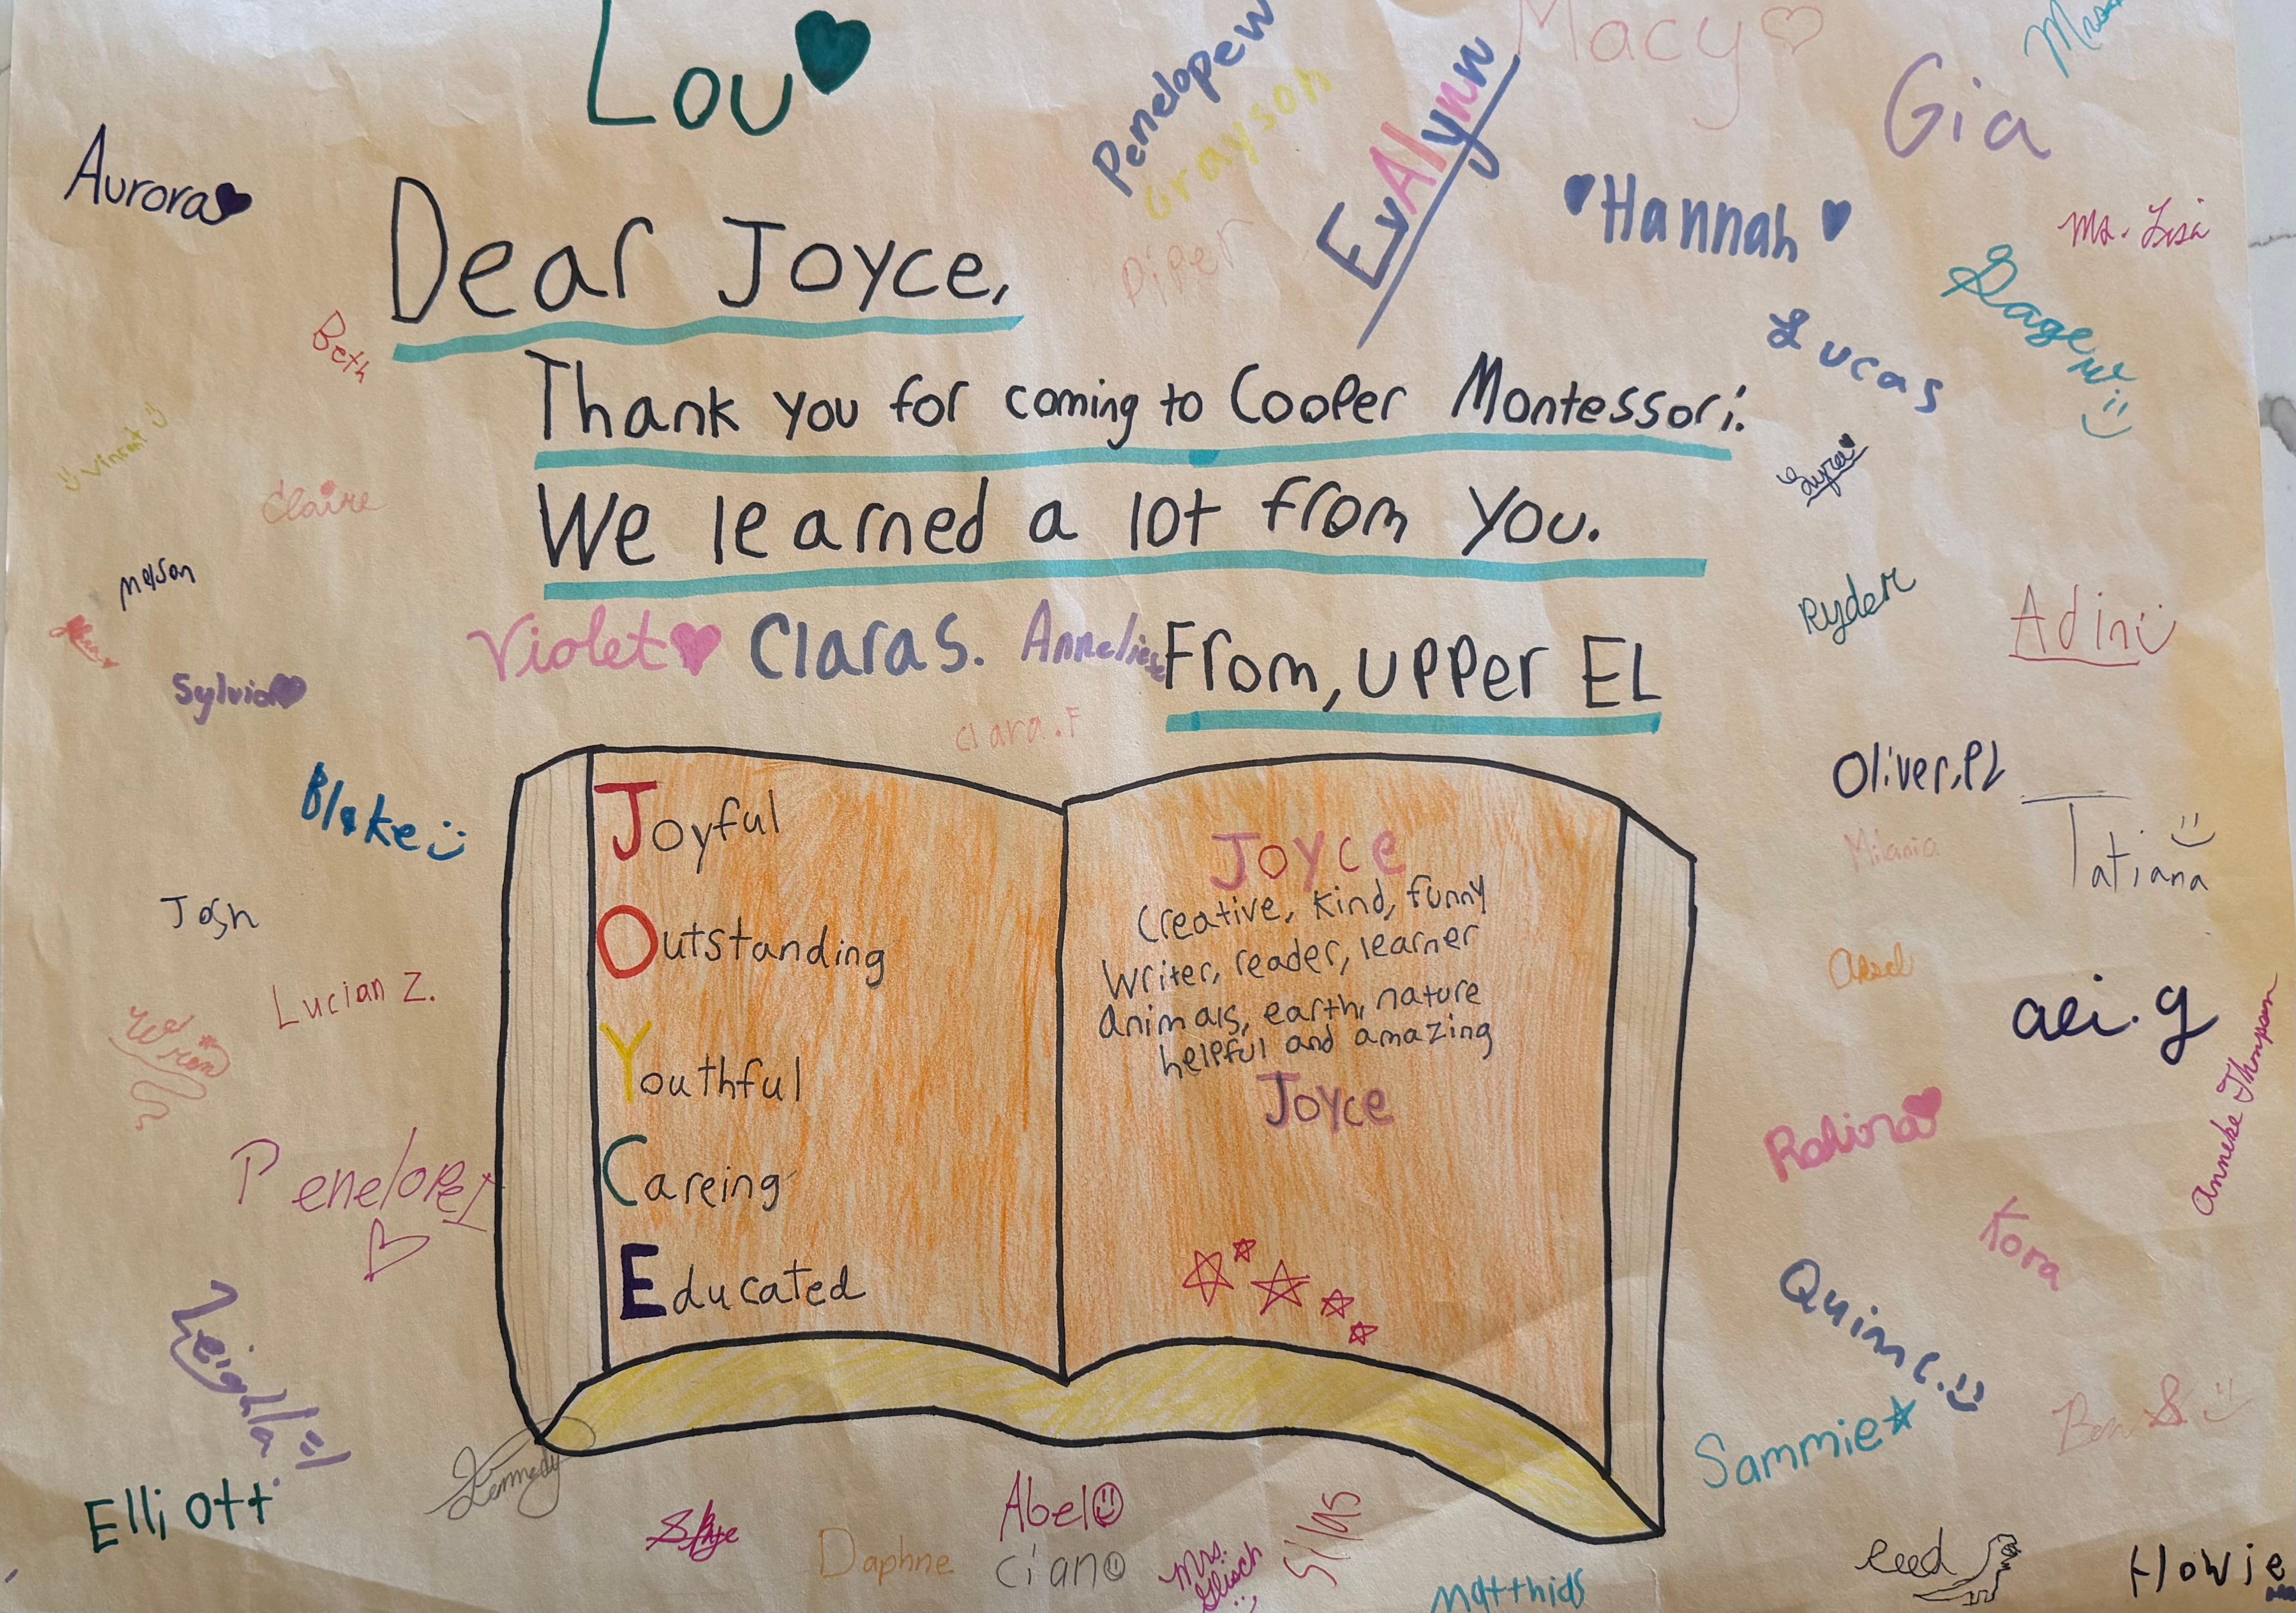 Lou
Macy
Penelope W
Grayson
EvAlynn
Gia
Aurora
Hannah
Ms. Lisa
Piper
Dear Joyce,
Sage W.
Beth
Lucas
Thank you for coming to Cooper Montessori.
Vincent
Claire
We learned a lot from you.
Nelson
Ryder
Adin
Violet
Clara S.
Anneliese
From, upper EL
Sylvia
Clara.F
Blake
Oliver.PL
Tatiana
Joyful
Outstanding
Youthful
Careing
Educated
Joyce
Creative, kind, funny
Writer, reader, learner
Animals, earth, nature
helpful and amazing
Joyce
Josh
Lucian Z.
aei.g
Anneke Thompson
Penelope I
Kora
Quinn C.
Leighla
Sammie
Ben S
Kennedy
Elliott
Skye
Abel
Daphne
Cian
Mrs.
Glisch
Silas
Matthias
Reed
Howie